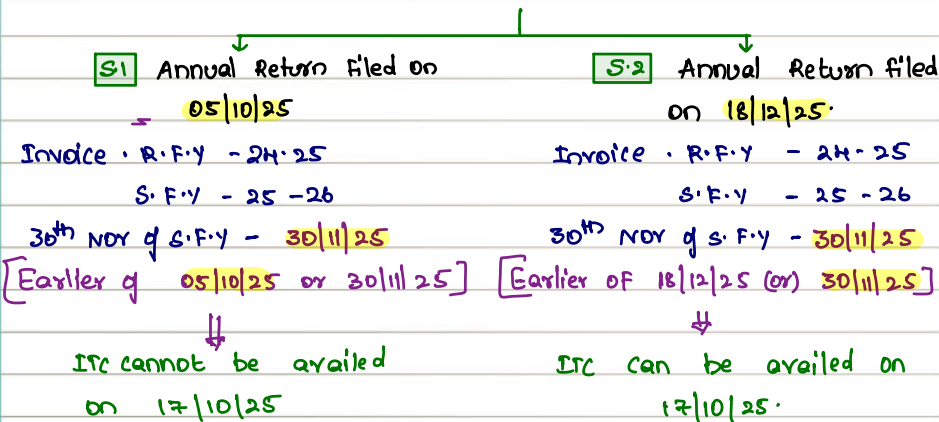 S1 Annual Return Filed on
05/10/25
Invoice . R.F.Y - 24.25
S.F.Y - 25 - 26
30th Nov of S.F.Y - 30/11/25
[Earlier of 05/10/25 or 30/11/25]
⇓
ITC cannot be availed
on 17/10/25
S.2 Annual Return filed
on 18/12/25.
Invoice . R.F.Y - 24 - 25
S.F.Y - 25 - 26
30th Nov of S.F.Y - 30/11/25
[Earlier OF 18/12/25 (or) 30/11/25]
⇓
ITC can be availed on
17/10/25.